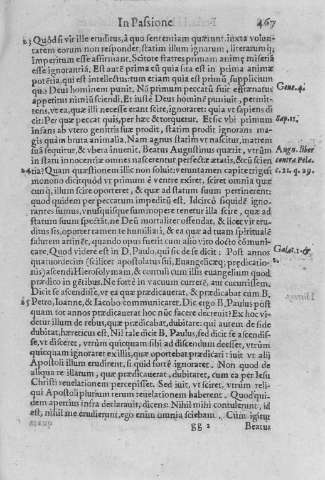 In Passione
467
23 Quòd si vir ille eruditus, à quo sententiam quærunt, iuxta volun-
tatem eorum non responder, statim illum ignarum, literarumq;
Imperitum esse affirmant. Scitote fratres primam animæ miseriā
esse ignorantiā. Est autē prima eū quia sita est in prima animæ
potētia, qui est intellectus: tum etiam quia est primū supplicium
qua Deus hominem punit. Nū primum peccatū fuit
appetitus nimiū sciendi. Et iustè Deus hominē puniuit, permit-
tens, vt ea, quæ illi necesse erant scire, ignoraret: quia vt sapiens di
cit: Per quæ peccat quis, per hæc & torquetur. Et sic vbi primum
infans ab vtero genitris suæ prodit, statim prodit ignorans ma-
gis quàm bruta animalia. Nam agnus statim vt nascitur, matrem
suā sequitur, & vbera inuenit. Beatus Augustinus quærit, vtrūm
in statu innocentiæ omnes nascerentur perfectæ ætatis, & cū scien
24 tia? Quam quæstionem illic non soluit; veruntamen capite trigesi
mo nono dicit, quòd vt primùm è ventre exiret, sciret omnia quæ-
cunq; illum scire oporteret, & quæ ad statum suum pertinerent:
quod quidem per peccatum impeditū est. Idcircò siquidē igno-
rantes sumus, vnusquisque summopere tenetur illa scire, quæ ad
statum suum spectāt, ne Deū mortaliter offendat, & licet vir eru-
ditus sis, oportet tamen te humiliari, & ea quæ ad tuam spiritualē
salutem attinēt, quando opus fuerit cum alio viro docto cōmuni-
care. Quod videre est in D. Paulo, qui sic de se dicit: Post annos
quatuordecim (scilicet apostolatus sui, Euangelicæq; prædicatio-
nis) ascendi Hierosolymam, & contuli cum illis euangelium quod
prædico in gētibus. Ne fortè in vacuum currerē, aut cucurrissem.
Dicit se ascendisse, vt ea quæ prædicauerat, & prædicabat cum B.
25 Petro, Ioanne, & Iacobo communicaret. Die ergo B. Paulus post
quam tot annos prædicauerat hoc nūc facere decreuit? Ex hoc vi-
detur illum de rebus, quæ prædicabat, dubitare: qui autem de fide
dubitat, hæreticus est. Nil tale dicit B. Paulus, sed dicit se ascendis-
se, vt disceret, vtrùm quicquam sibi ad discendum deesset, vtrùm
quicquam ignoraret ex illis, quæ oportebat prædicari: iuit vt alij
Apostoli illum erudirent, si quid fortè ignoraret. Non quod de
aliqua re illarum, quæ prædicauerat, dubitaret, cum ea per Iesu
Christi reuelationem percepisset. Sed iuit, vt sciret, vtrùm reli-
qui Apostoli plurium rerum reuelationem haberent. Quod qui-
dem apertius infra declarauit, dicens: Nihil mihi contulerunt, id
est, nihil me erudierunt, ego enim omnia sciebam. Cùm igitur
gg 2
Beatus
Gene. 4.
Sap. 11.
Aug. liber
contra Pela.
c. 21. q. 29.
Galat. 1. &
2.